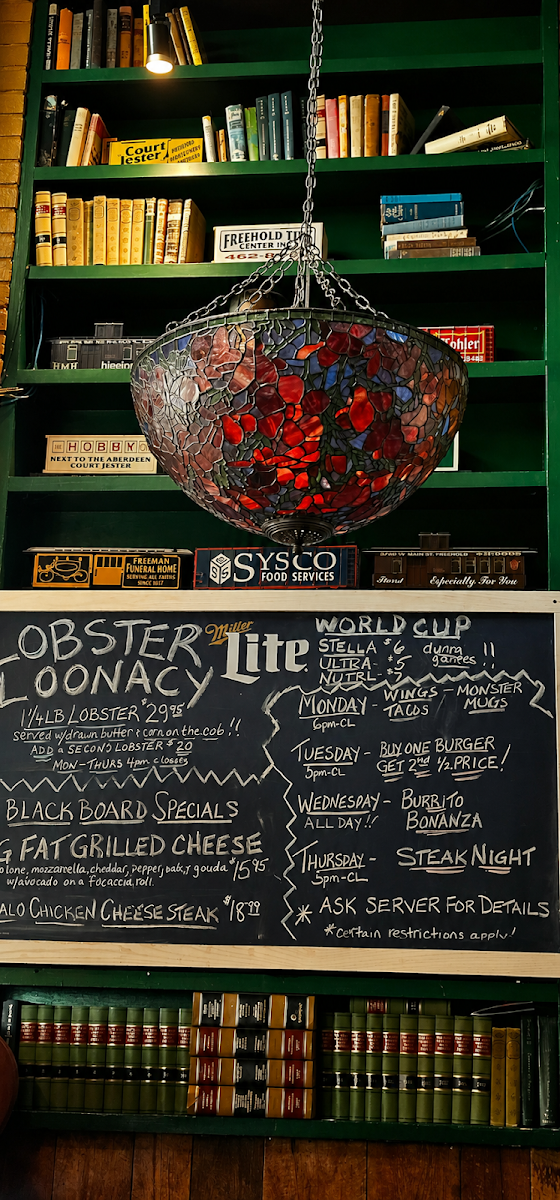 Court
Jester
FREEHOLD
CENTER INC
462-8
HMH
ohler
THE HOBBY
NEXT TO THE ABERDEEN
COURT JESTER
FREEMAN
FUNERAL HOME
SERVING ALL FAITHS
SINCE 1917
SYSCO
FOOD SERVICES
3740 W MAIN ST. FREEHOLD
Especially For You
LOBSTER
LOONACY
1 1/4 LB LOBSTER $29.95
served w/drawn butter & corn on the cob!!
ADD a SECOND LOBSTER $20
MON-THURS 4pm - closes
Miller
Lite
WORLD CUP
STELLA - $6
ULTRA - $5
NUTRL - $7
during
games!!
MONDAY - WINGS - MONSTER
6pm-CL TACOS MUGS
TUESDAY - BUY ONE BURGER
5pm-CL GET 2nd 1/2 PRICE!
WEDNESDAY - BURRITO
ALL DAY!! BONANZA
THURSDAY - STEAK NIGHT
5pm-CL
* ASK SERVER FOR DETAILS
*Certain restrictions apply!
BLACK BOARD SPECIALS
G FAT GRILLED CHEESE
olone, mozzarella, cheddar, pepper jack, & gouda $15.95
w/avocado on a focaccia roll.
ALO CHICKEN CHEESE STEAK $18.99